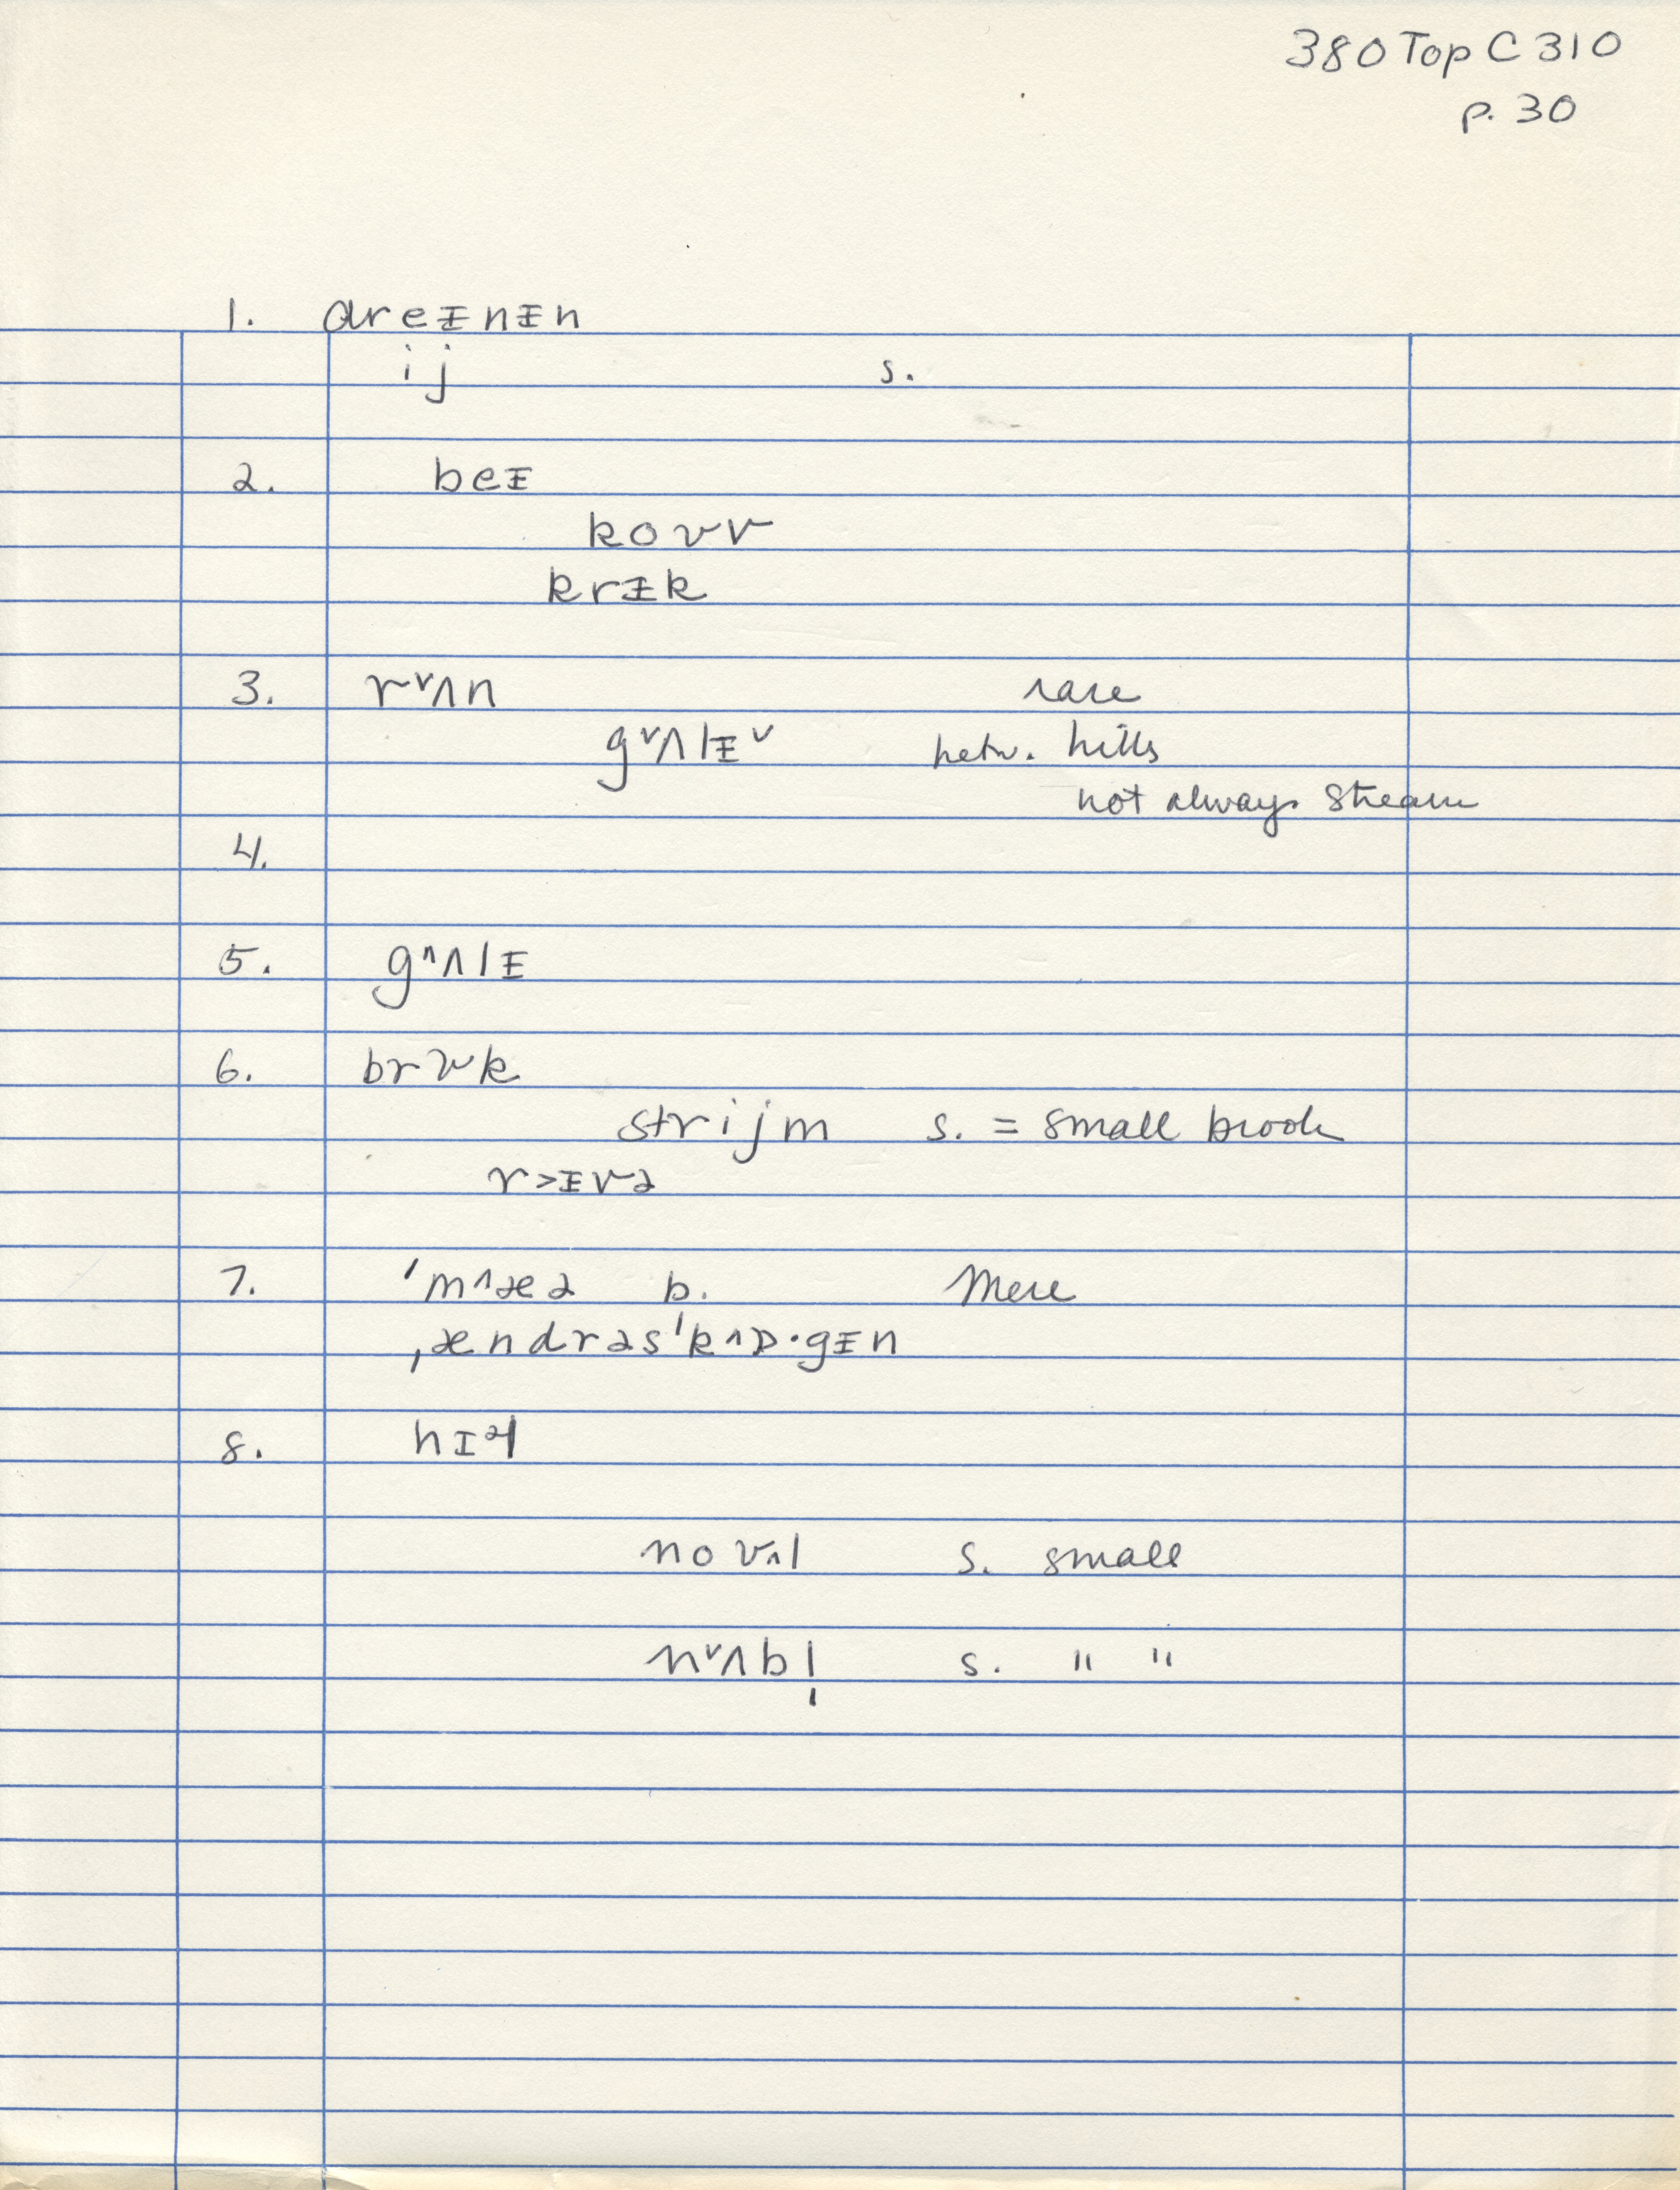 380 Top C 310
p. 30
1. dreᵻnᵻn
ij s.
2. beᵻ
koʊv
krᵻk
3. r˅ʌn rare
g˅ʌlᵻ˅ betw. hills
not always stream
4.
5. g^ʌlᵻ
6. brʊk
strijm s. = small brook
r>ᵻvə
7. ˈm^æə b. Mere
ˌændrəsˈk^ɒ·gᵻn
8. hɪəl
no s. small
n˅ʌbl̩ s. " "